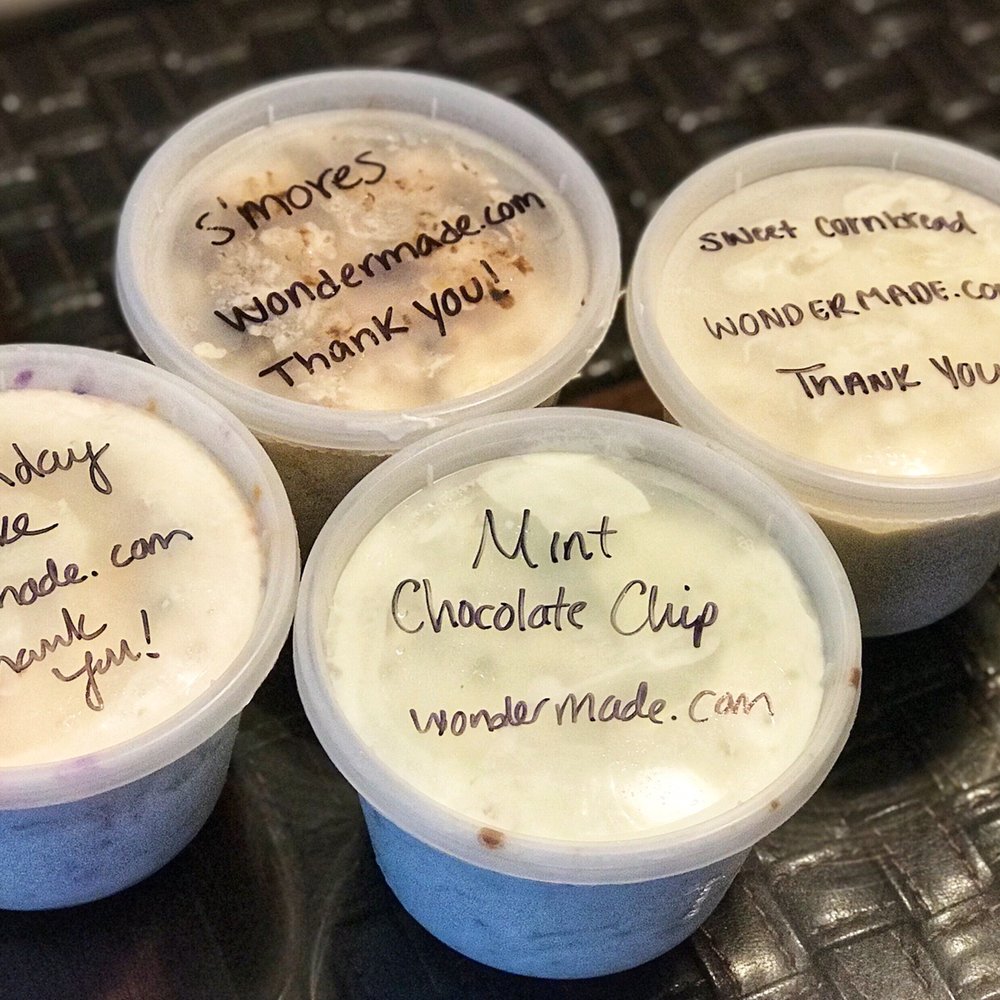 s'mores
wondermade.com
Thank you!
sweet cornbread
WONDERMADE.CO
THANK YOU
day
made.com
you!
Mint
Chocolate Chip
wondermade.com